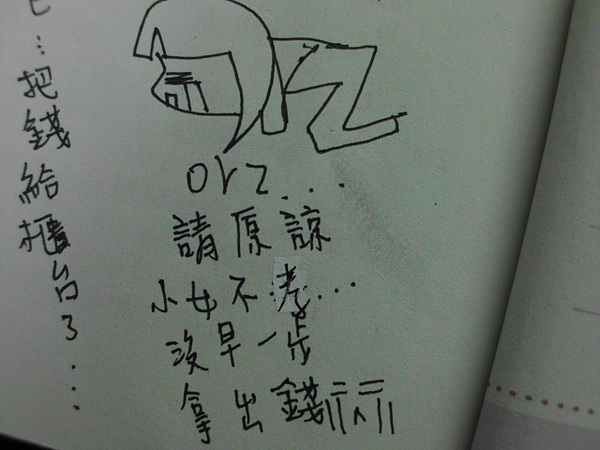 …把錢給櫃台了...
orz...
請原諒
小女不孝...
沒早一步
拿出錢